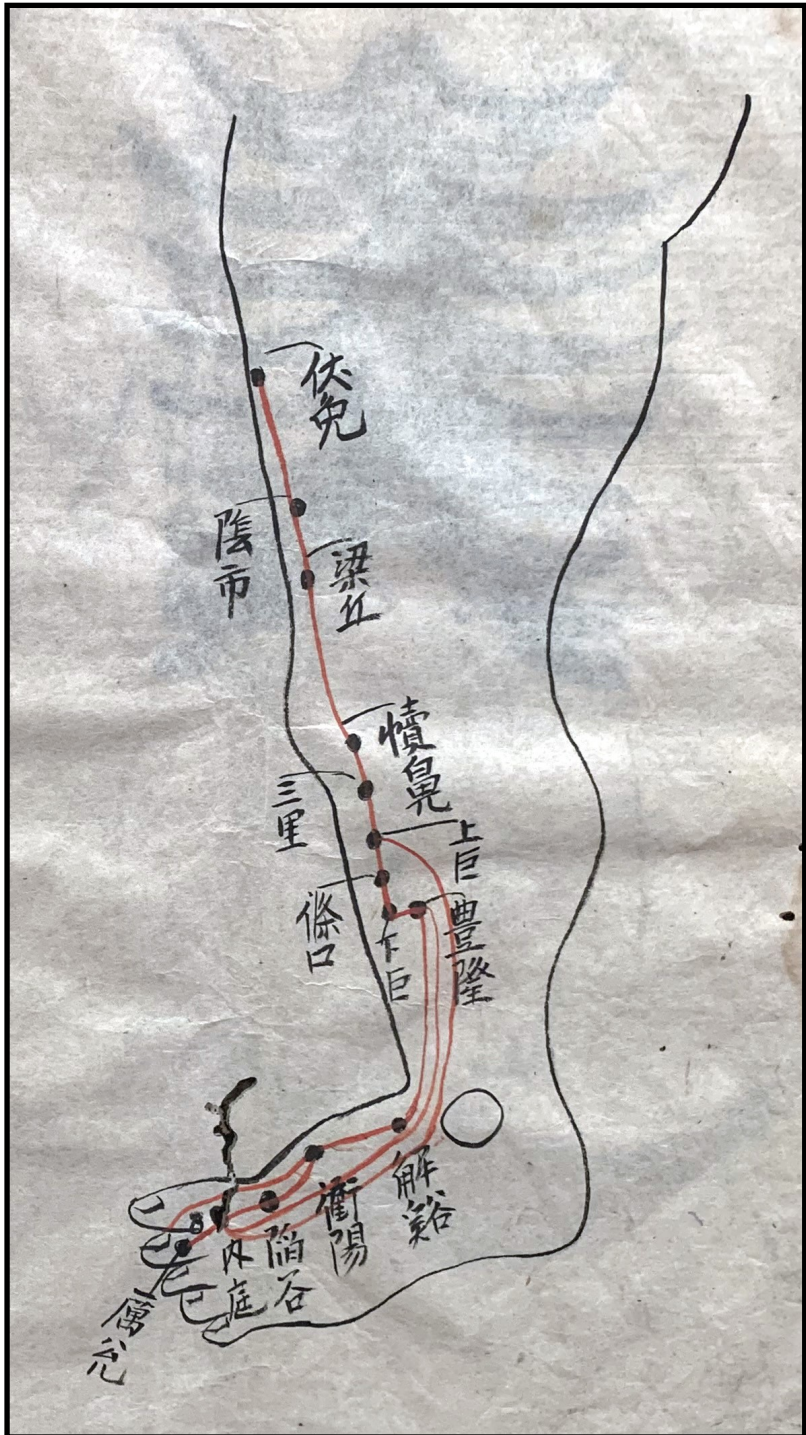 伏兔
陰市
梁丘
犢鼻
三里
上巨
條口
下巨
豐隆
解谿
衝陽
陷谷
内庭
厲兌